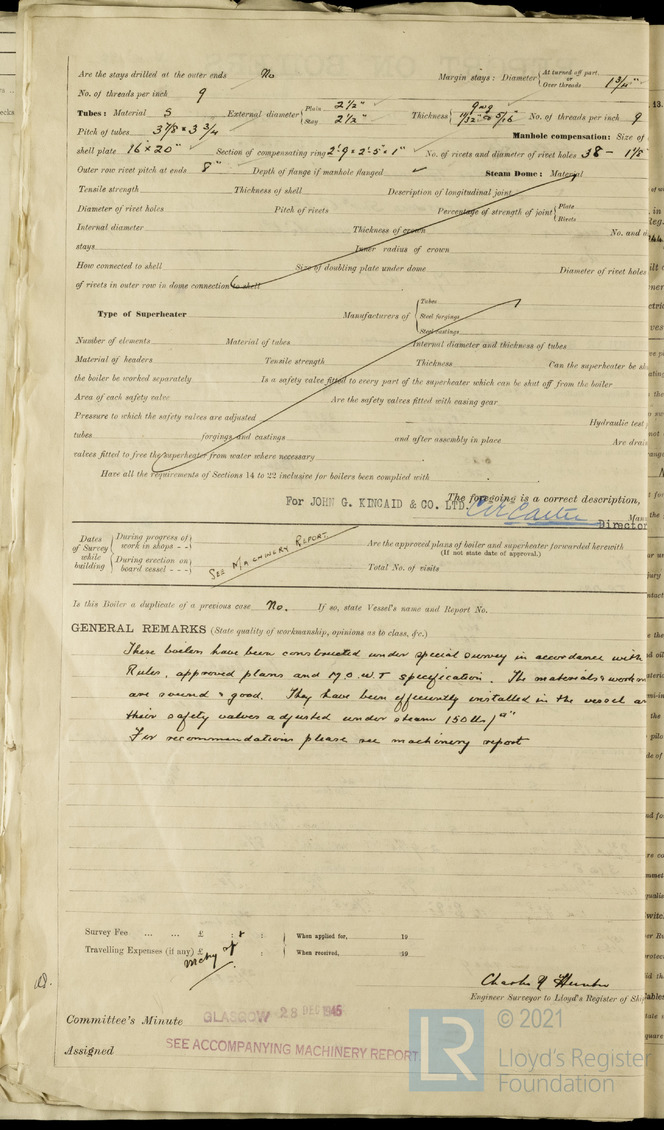 Are the stays drilled at the outer ends No Margin stays: Diameter { At turned off part, or Over threads 1 3/4"
No. of threads per inch 9
Tubes: Material S External diameter { Plain 2 1/2" Stay 2 1/2" Thickness { 9 wg 11/32" & 5/16 No. of threads per inch 9
Pitch of tubes 3 7/8 × 3 3/4 Manhole compensation: Size of
shell plate 16 × 20" Section of compensating ring 2'-9 × 2'-5 × 1" No. of rivets and diameter of rivet holes 38 - 1 1/8"
Outer row rivet pitch at ends 8" Depth of flange if manhole flanged Steam Dome: Material
Tensile strength Thickness of shell Description of longitudinal joint
Diameter of rivet holes Pitch of rivets Percentage of strength of joint { Plate Rivets
Internal diameter Thickness of crown No. and
stays Inner radius of crown
How connected to shell Size of doubling plate under dome Diameter of rivet holes
of rivets in outer row in dome connection to shell
Type of Superheater Manufacturers of { Tubes Steel forgings Steel castings
Number of elements Material of tubes Internal diameter and thickness of tubes
Material of headers Tensile strength Thickness Can the superheater be
the boiler be worked separately Is a safety valve fitted to every part of the superheater which can be shut off from the boiler
Area of each safety valve Are the safety valves fitted with easing gear
Pressure to which the safety valves are adjusted Hydraulic test
tubes forgings and castings and after assembly in place Are
valves fitted to free the superheater from water where necessary
Have all the requirements of Sections 14 to 22 inclusive for boilers been complied with
The foregoing is a correct description,
For JOHN G. KINCAID & CO. LTD. Carter
Director
Dates of Survey while building { During progress of work in shops - - During erection on board vessel - - - } SEE MACHINERY REPORT
Are the approved plans of boiler and superheater forwarded herewith
(If not state date of approval.)
Total No. of visits
Is this Boiler a duplicate of a previous case No. If so, state Vessel's name and Report No.
GENERAL REMARKS (State quality of workmanship, opinions as to class, &c.)
These boilers have been constructed under special survey in accordance with
Rules, approved plans and M.O.W.T specification. The materials &
are sound & good. They have been efficiently installed in the vessel
their safety valves adjusted under steam 150 lbs/□"
For recommendations please see machinery report
Survey Fee ... ... £ : : When applied for, 19
Travelling Expenses (if any) £ : : When received, 19
Mchy
Engineer Surveyor to Lloyd's Register of
Committee's Minute GLASGOW 28 DEC 1945
Assigned SEE ACCOMPANYING MACHINERY REPORT.
LR © 2021
Lloyd's Register
Foundation